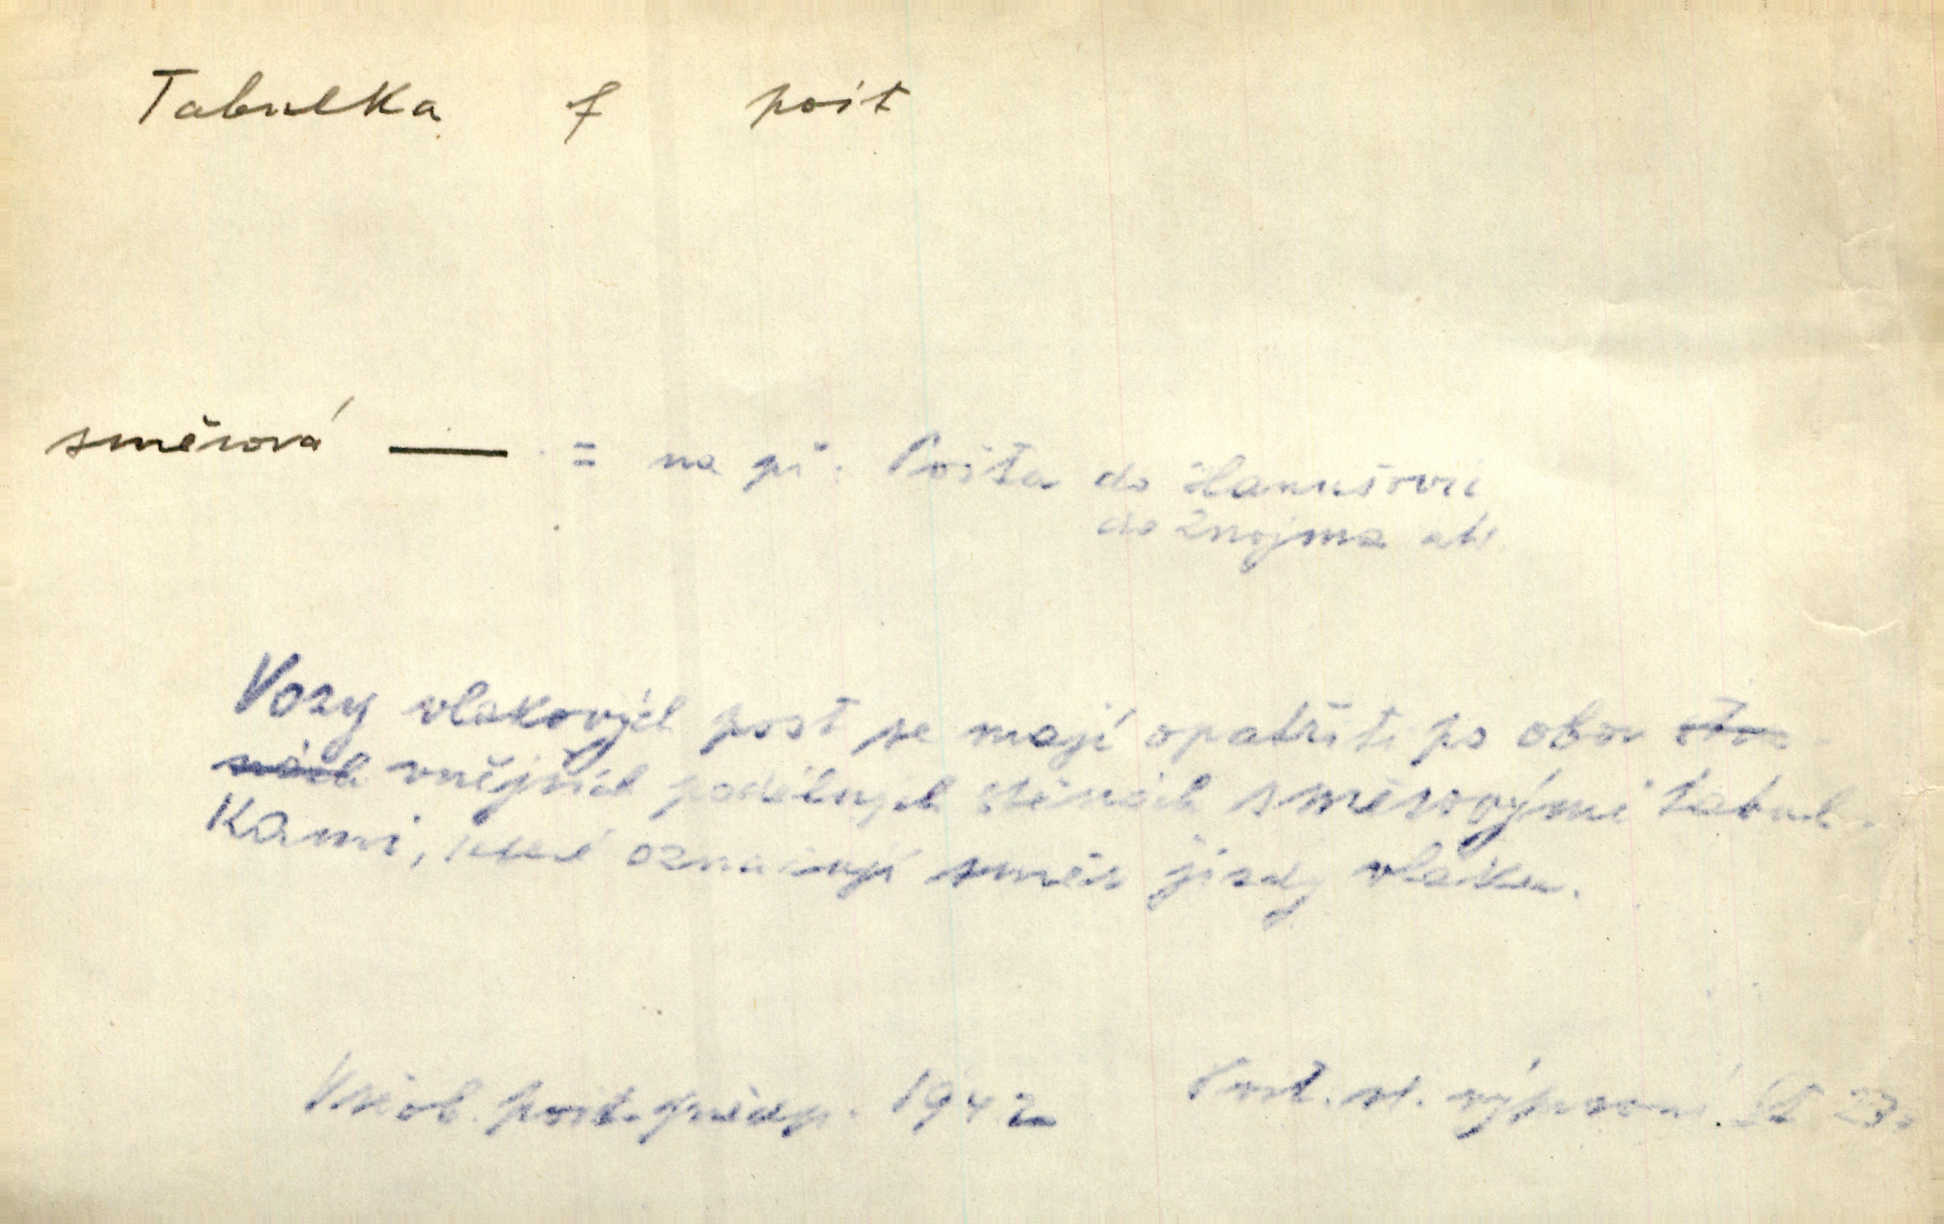 Tabulka f pošt
směrová — = na př. Pošta do Hanušovic
do Znojma atd.
Vozy vlakových pošt se mají opatřiti po obou stra-
nách vnějších podélných stěnách směrovými tabul-
kami, které označují směr jízdy vlaku.
Všeob. pošt. předp. 1942 Pošt. sl. výpravní. 23.